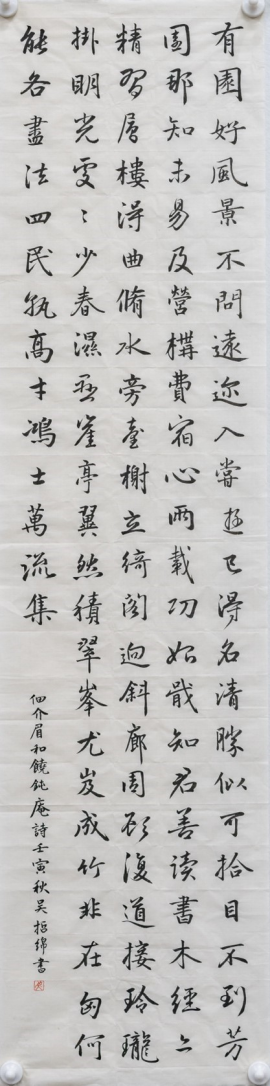 有園好風景不問遠迩入嘗已得名清勝似可拾目不到芳
園那知未易及營構費宿心兩載功始戢知君善读書木經
精習層樓得曲脩水旁臺榭立綺閣迥斜廊周顧復道接玲瓏
掛明光雯〻少春濕崔亭翼然積翠峯尤岌成竹非在匈何
能各盡法四民孰高才鴻士萬流集
佃介眉和饒鈍庵詩壬寅秋吴綿書